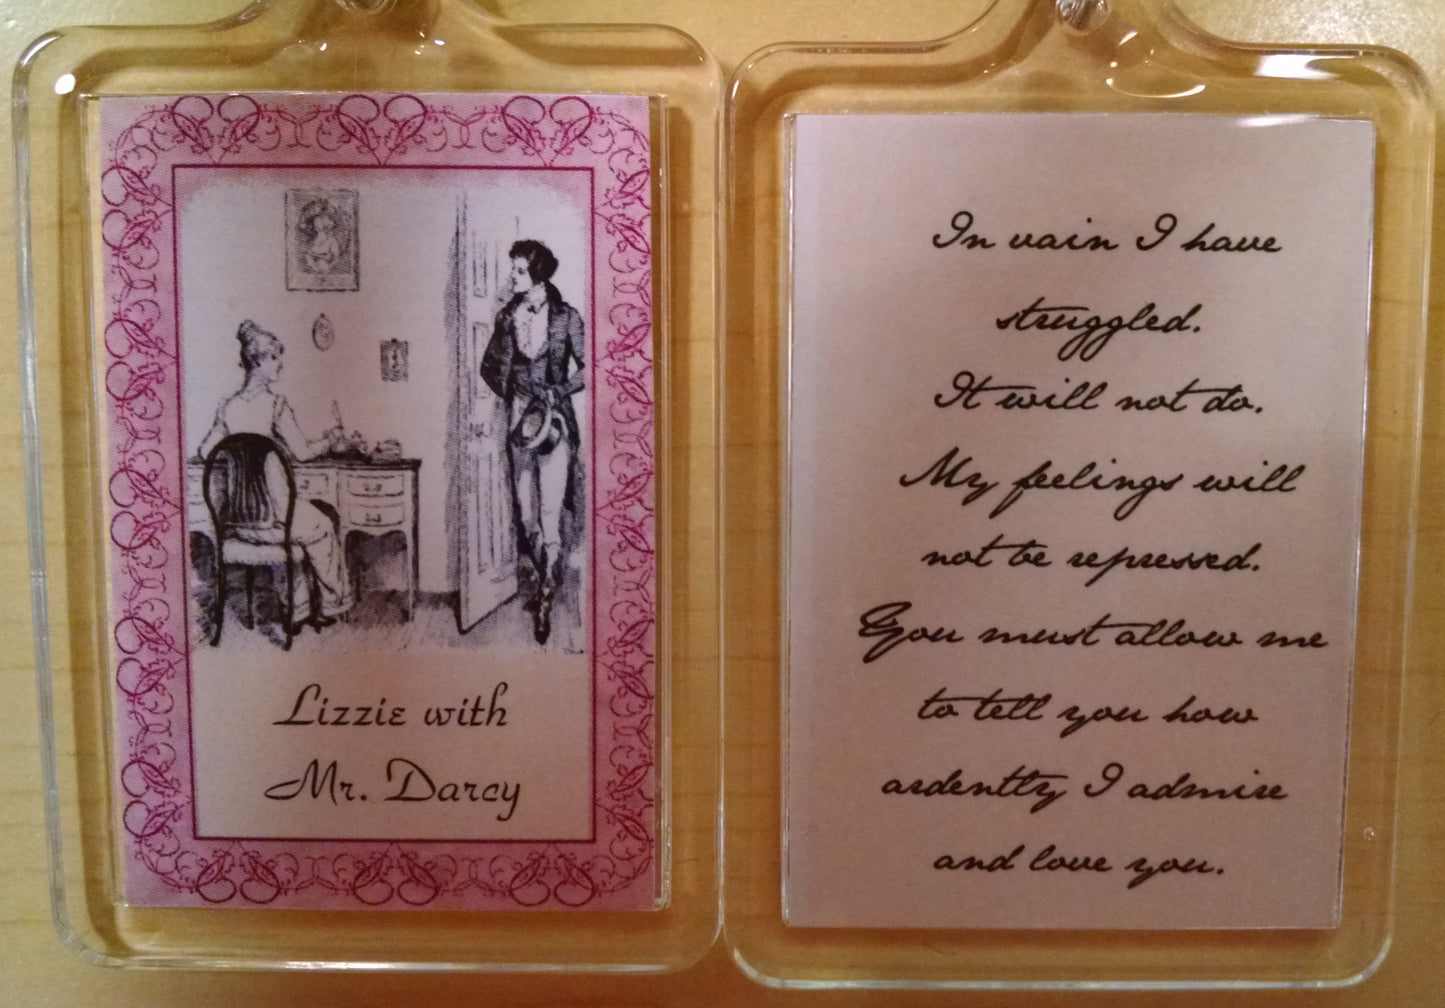 Lizzie with
Mr. Darcy
In vain I have
struggled.
It will not do.
My feelings will
not be repressed.
You must allow me
to tell you how
ardently I admire
and love you.